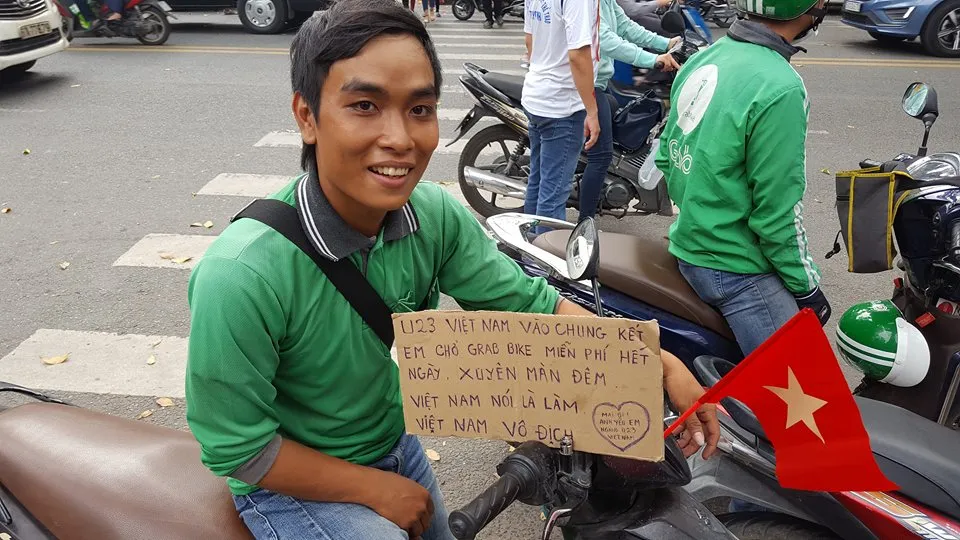 U23 VIỆT NAM VÀO CHUNG KẾT
EM CHỞ GRAB BIKE MIỄN PHÍ HẾT
NGÀY. XUYÊN MÀN ĐÊM.
VIỆT NAM NÓI LÀ LÀM.
VIỆT NAM VÔ ĐỊCH
ANH YÊU EM
U23
VIỆT NAM
Grab